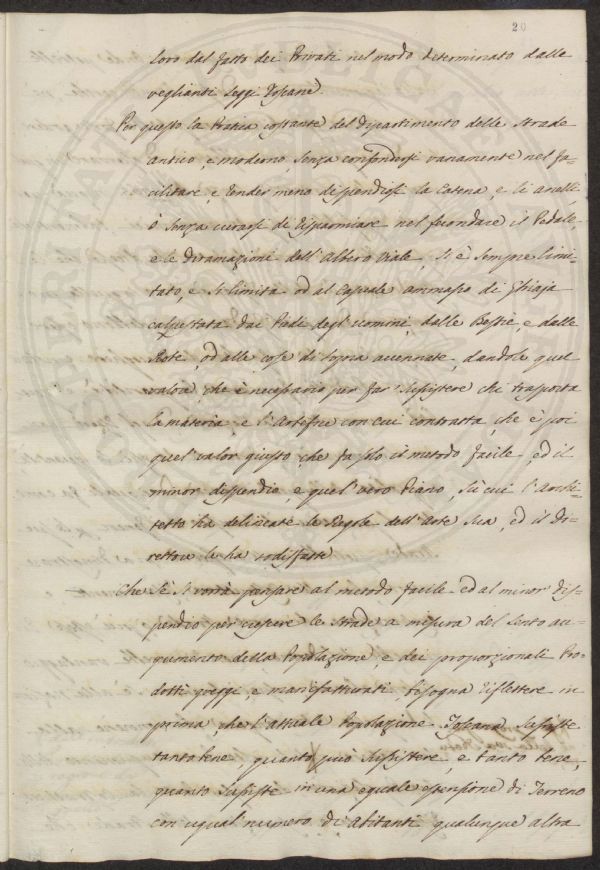 20
loro dal fatto dei Privati nel modo determinato dalle
veglianti Leggi Toscane
Per questo la Pratica costante del Dipartimento delle Strade
antico, e moderno, senza confondersi vanamente nel fa=
cilitare, e render meno dispendiosi la Catena, e li anelli
ò senza curarsi di risparmiare nel fecondare il Pedale,
e le diramazioni dell'Albero Viale, si è sempre limi=
tato, e si limita od al Casuale ammasso di Ghiaja
calpestata dai Piedi degl'uomini, dalle Bestie, e dalle
Rote, od alle cose di sopra accennate, dandole quel
valore che è necessario per far sussistere chi trasporta
la materia, e l'Artefice con cui contratta, che è poi
quel valor giusto, che fa solo il metodo facile, ed il
minor dispendio, e quel vero Piano, sù cui l'archi=
tetto ha delineate le Regole dell'Arte sua, ed il Di=
rettore le ha sodisfatte
Che sè si vorrà pensare al metodo facile ed al minor dis=
pendio per crescere le Strade a misura del lento au=
gumento della Popolazione, e dei proporzionali Pro=
dotti greggi, e manifatturati, bisogna riflettere in
prima, che l'attuale Popolazione Toscana sussiste
tanto bene, quanto può sussistere, e tanto bene,
quanto sussiste in una eguale estensione di Terreno
con ugual numero di abitanti qualunque altra